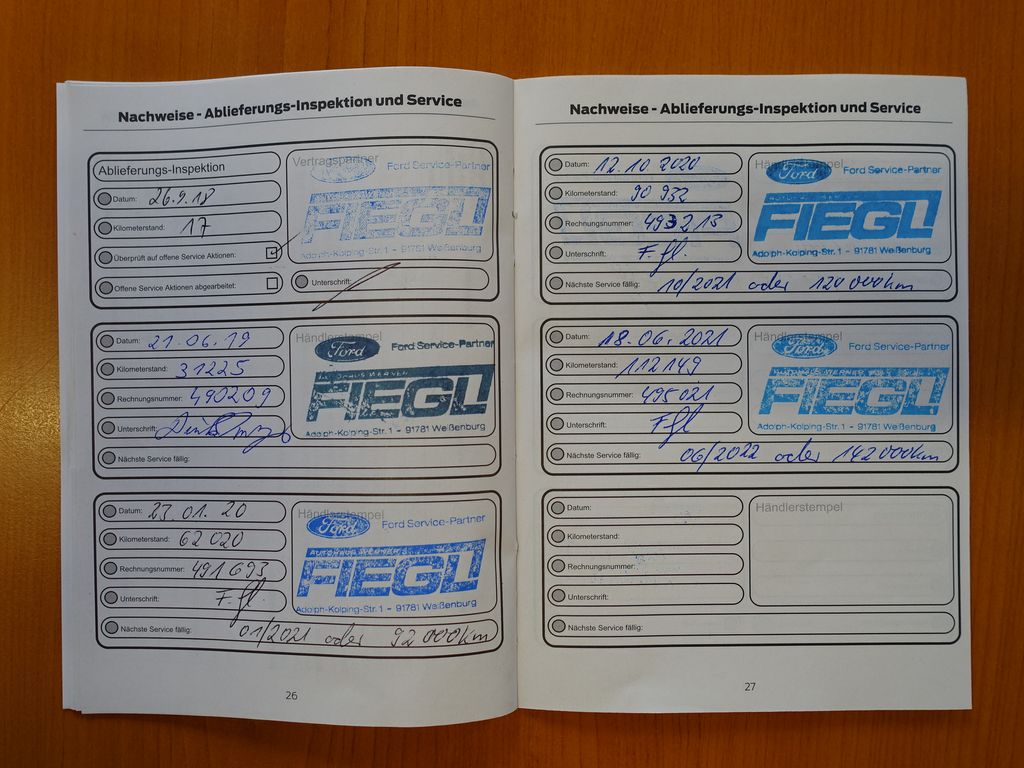 Nachweise - Ablieferungs-Inspektion und Service
Ablieferungs-Inspektion
Datum: 26.9.18
Kilometerstand: 17
Überprüft auf offene Service Aktionen:
Offene Service Aktionen abgearbeitet:
Vertragspartner
Ford Service-Partner
FIEGL
Adolph-Kolping-Str. 1 - 91781 Weißenburg
Unterschrift:
Datum: 21.06.19
Kilometerstand: 31225
Rechnungsnummer: 490209
Unterschrift:
Nächste Service fällig:
Händlerstempel
Ford Service-Partner
AUTOHAUS WERNER
FIEGL
Adolph-Kolping-Str. 1 - 91781 Weißenburg
Datum: 23.01.20
Kilometerstand: 62020
Rechnungsnummer: 491693
Unterschrift: F. fl.
Nächste Service fällig: 01/2021 oder 92000km
Händlerstempel
Ford Service-Partner
AUTOHAUS WERNER
FIEGL
Adolph-Kolping-Str. 1 - 91781 Weißenburg
26
Nachweise - Ablieferungs-Inspektion und Service
Datum: 12.10.2020
Kilometerstand: 90 932
Rechnungsnummer: 493213
Unterschrift: F. fl.
Nächste Service fällig: 10/2021 oder 120000km
Händlerstempel
Ford Service-Partner
FIEGL
Adolph-Kolping-Str. 1 - 91781 Weißenburg
Datum: 18.06.2021
Kilometerstand: 112149
Rechnungsnummer: 495021
Unterschrift: F. fl
Nächste Service fällig: 06/2022 oder 142000km
Händlerstempel
Ford Service-Partner
AUTOHAUS WERNER
FIEGL
Adolph-Kolping-Str. 1 - 91781 Weißenburg
Datum:
Kilometerstand:
Rechnungsnummer:
Unterschrift:
Nächste Service fällig:
Händlerstempel
27